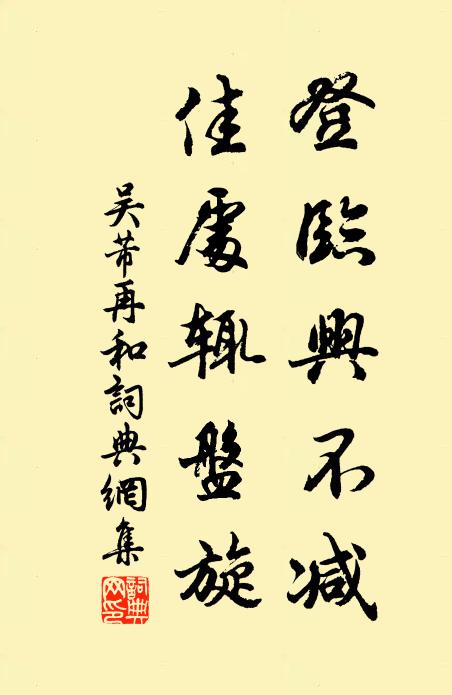 登臨興不減
佳處輒盤旋
吴芾再和詞典網集
詞典